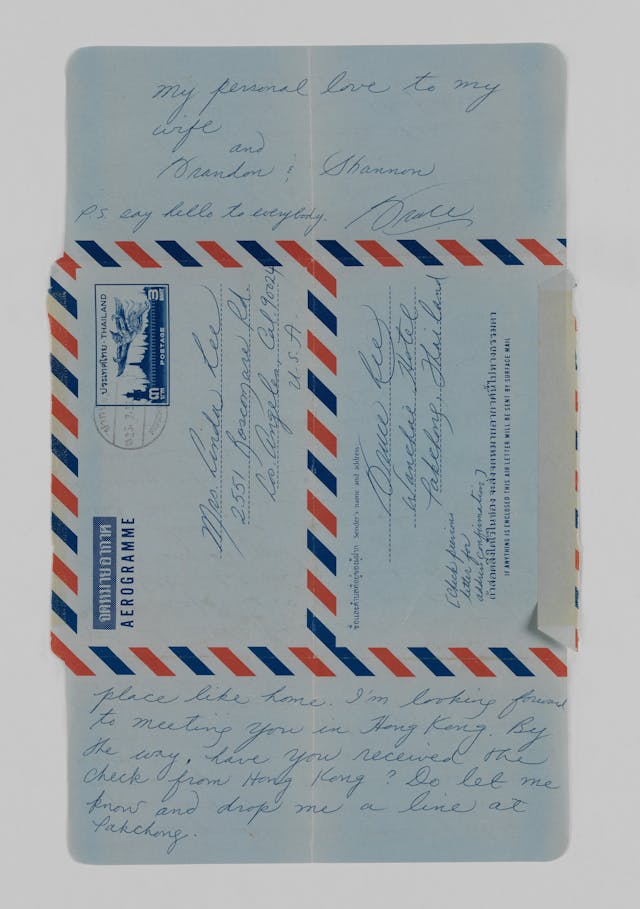 my personal love to my
wife
and
Brandon & Shannon
P.S. say hello to everybody. Bruce
ประเทศไทย·THAILAND
๓ บาท
POSTAGE
จดหมายอากาศ
AEROGRAMME
Mrs Linda Lee
2551 Roscomare Rd.
Los Angeles, Cal. 90024
U.S.A.
ชื่อและตำบลที่อยู่ของผู้ฝาก Sender's name and address
Bruce Lee
Wanchai Hotel
Pakchong, Thailand
(Check previous
letter for
address confirmation)
ถ้าสอดสิ่งใดไว้ในซองจะส่งจดหมายอากาศนี้ไปทางธรรมดา
IF ANYTHING IS ENCLOSED THIS AIR LETTER WILL BE SENT BY SURFACE MAIL
place like home. I'm looking forward
to meeting you in Hong Kong. By
the way, have you received the
check from Hong Kong? Do let me
know and drop me a line at
Pakchong.